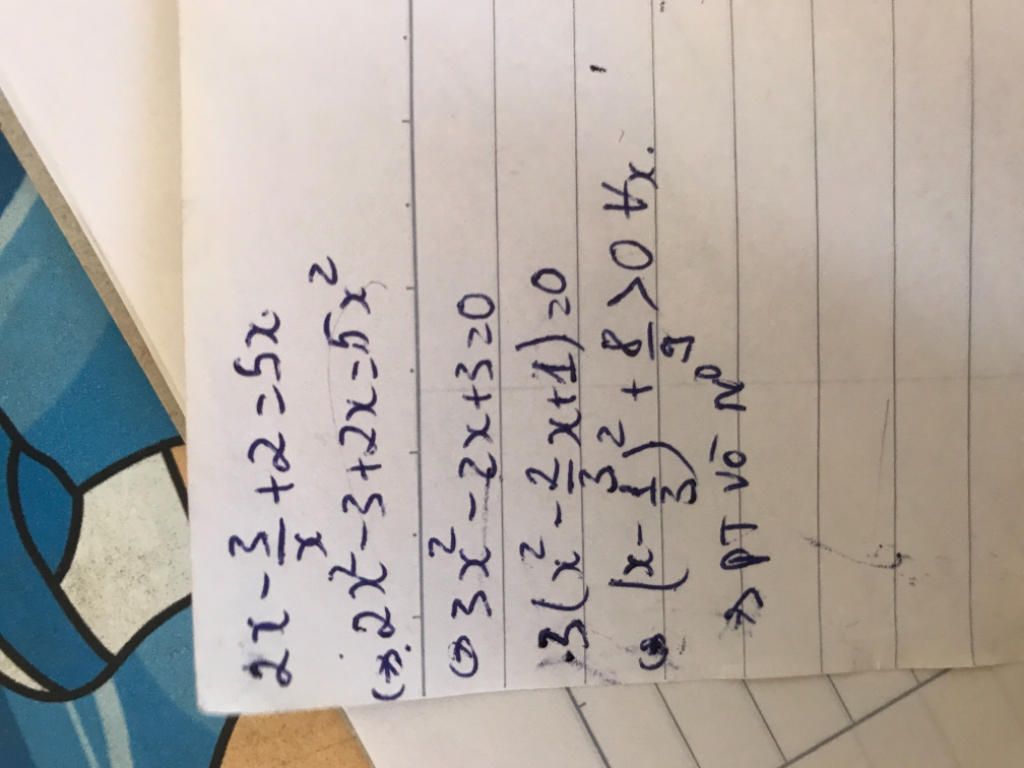 2x - 3/x + 2 = 5x
(=>. 2x² - 3 + 2x = 5x²
(=> 3x² - 2x + 3 = 0
.3(x² - 2/3 x + 1) = 0
(=> (x - 1/3)² + 8/9 > 0 ∀x.
=> PT vô N⁰